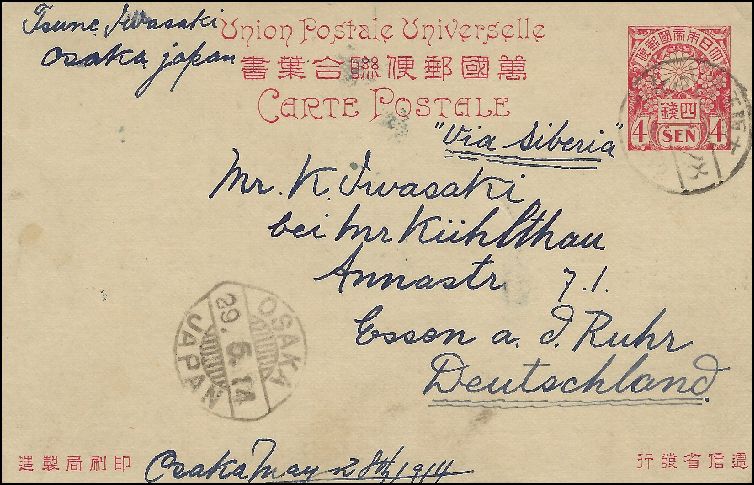 Tsune Iwasaki
Osaka Japan
Union Postale Universelle
書葉合聯便郵國萬
CARTE POSTALE
大日本帝國郵便
四錢
4 SEN 4
"Via Siberia"
Mr. K. Iwasaki
bei Mr Kühlthau
Annastr 71.
Essen a. d. Ruhr
Deutschland.
OSAKA
29. 5. 14
JAPAN
造製局刷印
Osaka May 28th 1914
行發省信遞